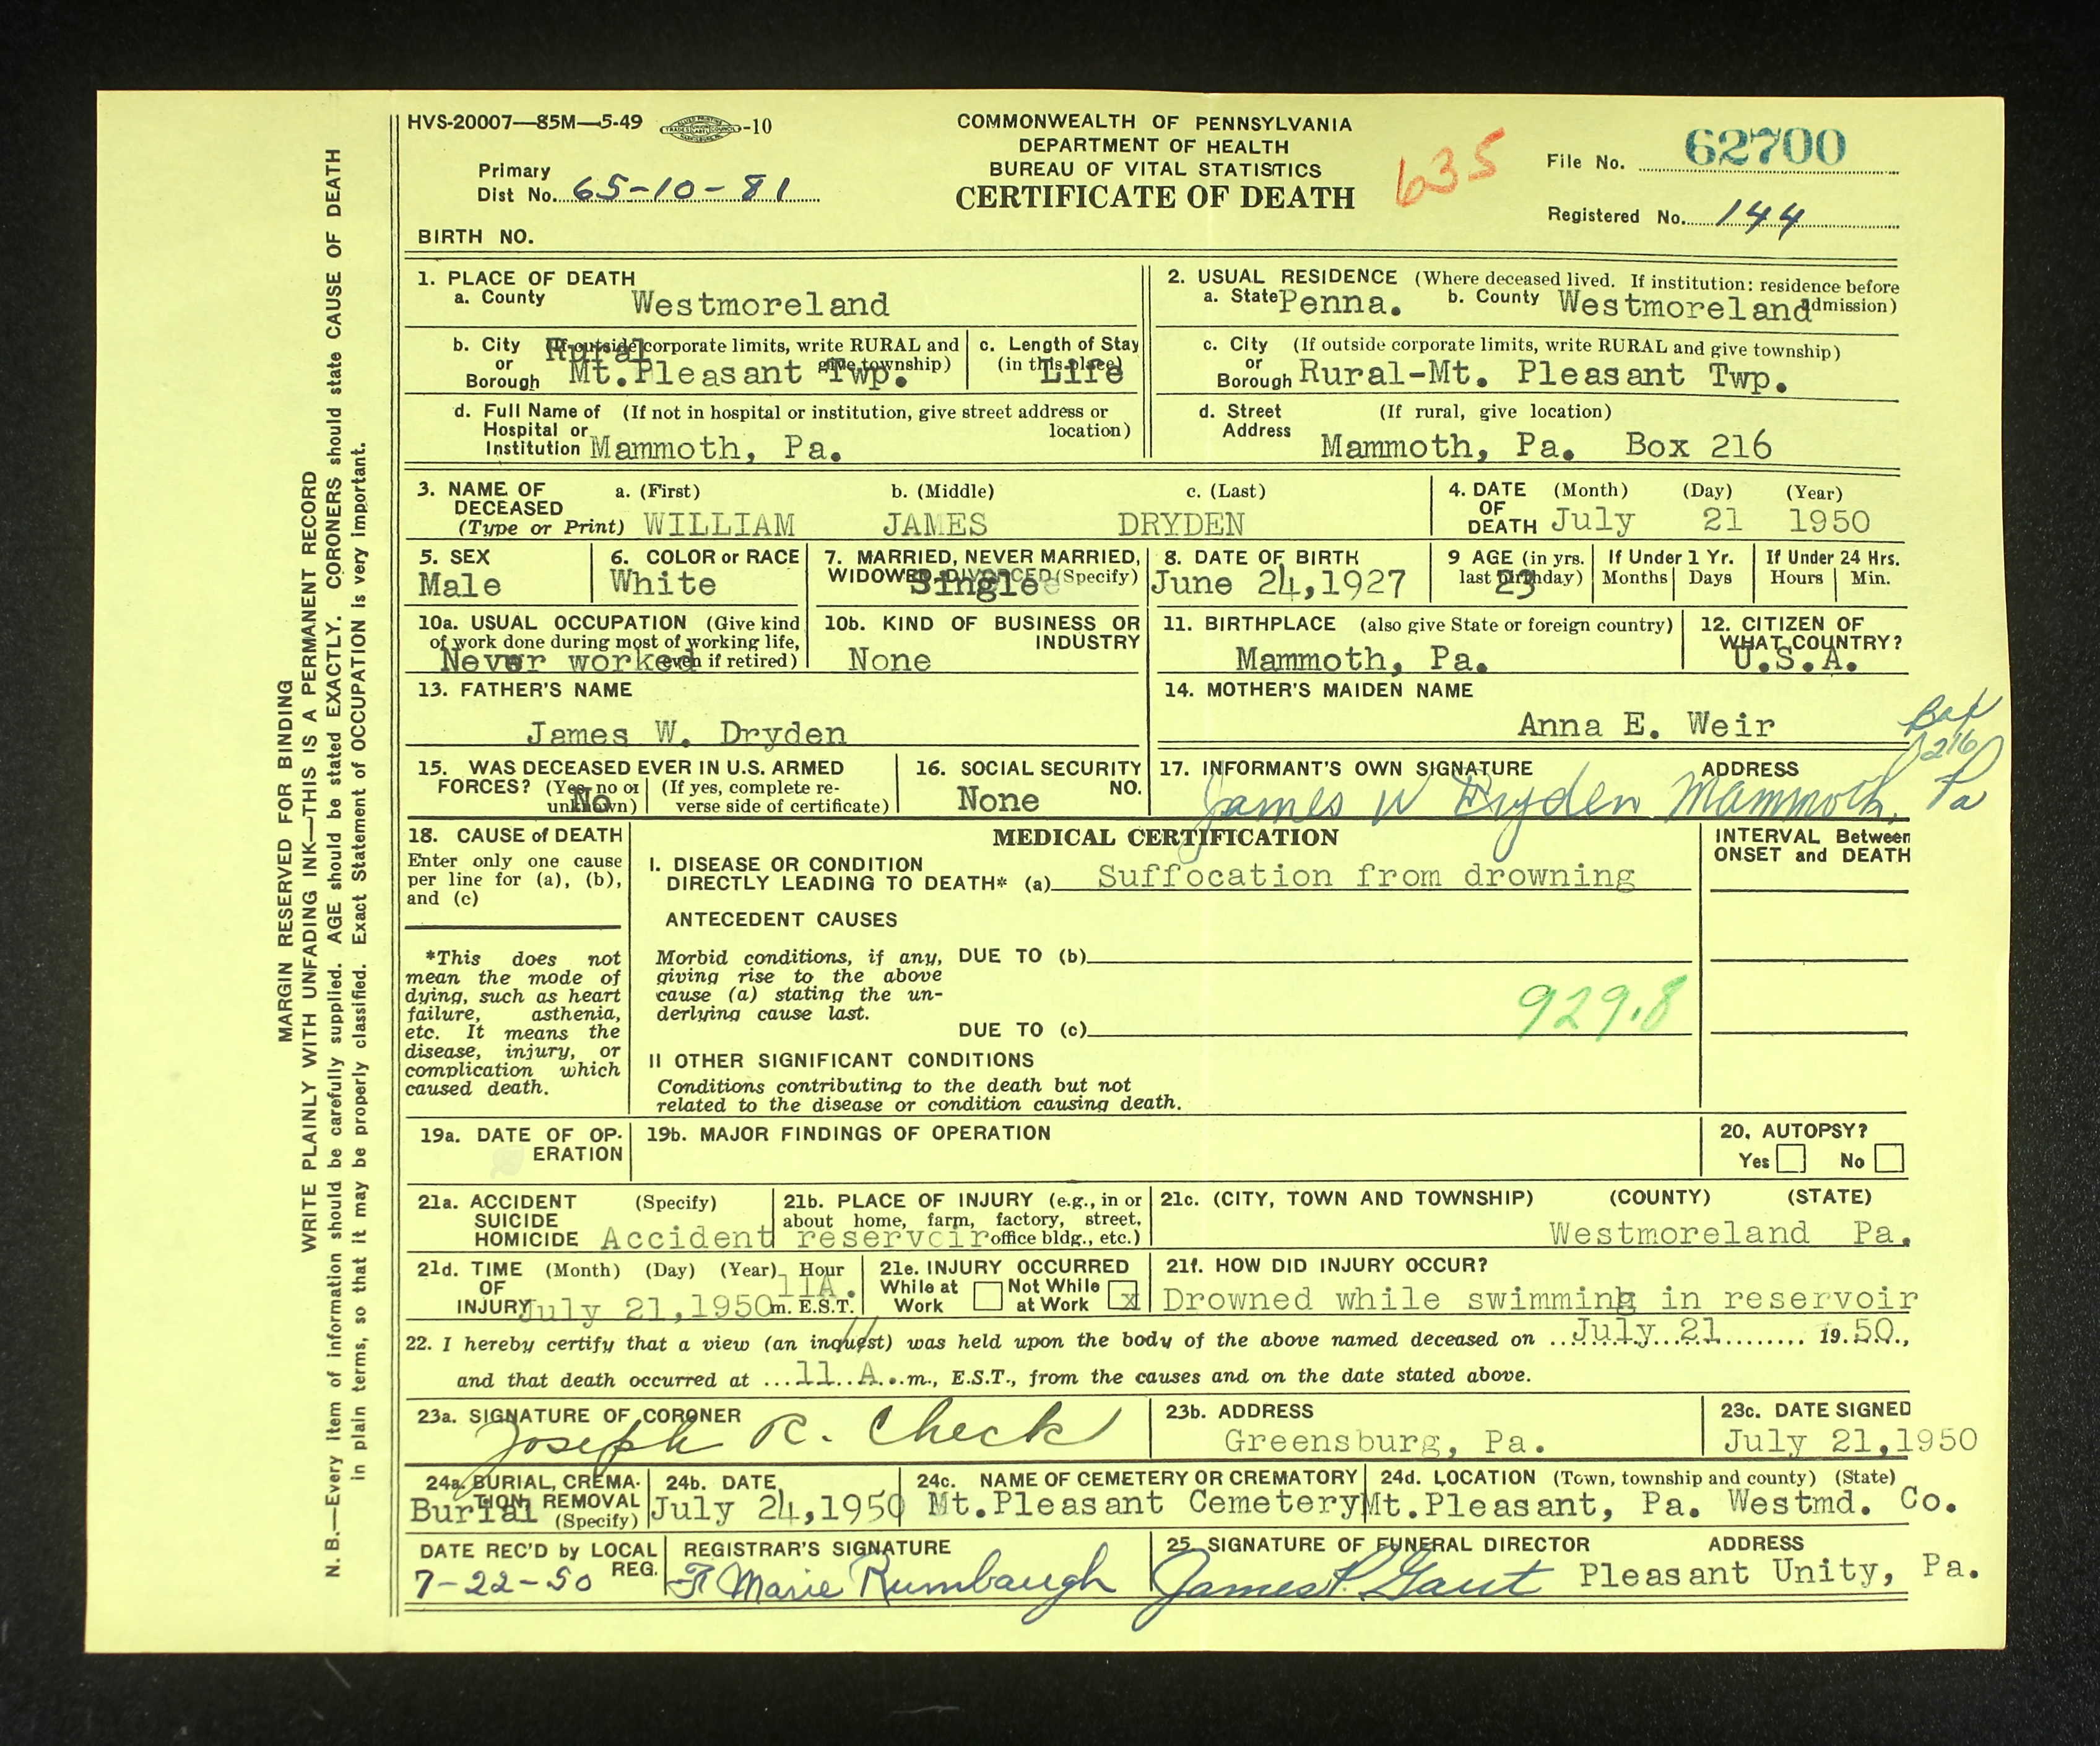 HVS-20007—85M—5-49 -10
COMMONWEALTH OF PENNSYLVANIA
DEPARTMENT OF HEALTH
BUREAU OF VITAL STATISTICS
CERTIFICATE OF DEATH
635
File No. 62700
Primary
Dist No. 65-10-81
Registered No. 144
BIRTH NO.
MARGIN RESERVED FOR BINDING
WRITE PLAINLY WITH UNFADING INK—THIS IS A PERMANENT RECORD
N. B.—Every item of information should be carefully supplied. AGE should be stated EXACTLY. CORONERS should state CAUSE OF DEATH
in plain terms, so that it may be properly classified. Exact Statement of OCCUPATION is very important.
1. PLACE OF DEATH
a. County Westmoreland
2. USUAL RESIDENCE (Where deceased lived. If institution: residence before
admission)
a. State Penna. b. County Westmoreland
b. City or Borough (If outside corporate limits, write RURAL and give township)
Rural
Mt.Pleasant Twp.
c. Length of Stay (in this place)
Life
c. City or Borough (If outside corporate limits, write RURAL and give township)
Rural-Mt. Pleasant Twp.
d. Full Name of Hospital or Institution (If not in hospital or institution, give street address or location)
Mammoth, Pa.
d. Street Address (If rural, give location)
Mammoth, Pa. Box 216
3. NAME OF DECEASED (Type or Print)
a. (First) b. (Middle) c. (Last)
WILLIAM JAMES DRYDEN
4. DATE OF DEATH (Month) (Day) (Year)
July 21 1950
5. SEX
Male
6. COLOR or RACE
White
7. MARRIED, NEVER MARRIED,
WIDOWED, DIVORCED (Specify)
Single
8. DATE OF BIRTH
June 24,1927
9 AGE (in yrs. last birthday)
23
If Under 1 Yr.
Months Days
If Under 24 Hrs.
Hours Min.
10a. USUAL OCCUPATION (Give kind
of work done during most of working life,
even if retired)
Never worked
10b. KIND OF BUSINESS OR
INDUSTRY
None
11. BIRTHPLACE (also give State or foreign country)
Mammoth, Pa.
12. CITIZEN OF
WHAT COUNTRY?
U.S.A.
13. FATHER'S NAME
James W. Dryden
14. MOTHER'S MAIDEN NAME
Anna E. Weir
15. WAS DECEASED EVER IN U.S. ARMED
FORCES? (Yes, no or unknown) (If yes, complete reverse side of certificate)
No
16. SOCIAL SECURITY NO.
None
17. INFORMANT'S OWN SIGNATURE ADDRESS
James W Dryden Mammoth, Pa
Box
216
18. CAUSE of DEATH
Enter only one cause
per line for (a), (b),
and (c)
*This does not
mean the mode of
dying, such as heart
failure, asthenia,
etc. It means the
disease, injury, or
complication which
caused death.
MEDICAL CERTIFICATION
INTERVAL Between
ONSET and DEATH
I. DISEASE OR CONDITION
DIRECTLY LEADING TO DEATH* (a) Suffocation from drowning
ANTECEDENT CAUSES
Morbid conditions, if any,
giving rise to the above
cause (a) stating the un-
derlying cause last.
DUE TO (b)
DUE TO (c)
929.8
II OTHER SIGNIFICANT CONDITIONS
Conditions contributing to the death but not
related to the disease or condition causing death.
19a. DATE OF OP-
ERATION
19b. MAJOR FINDINGS OF OPERATION
20. AUTOPSY?
Yes No
21a. ACCIDENT (Specify)
SUICIDE
HOMICIDE Accident
21b. PLACE OF INJURY (e.g., in or
about home, farm, factory, street,
office bldg., etc.)
reservoir
21c. (CITY, TOWN AND TOWNSHIP) (COUNTY) (STATE)
Westmoreland Pa.
21d. TIME OF INJURY (Month) (Day) (Year) Hour
July 21,1950 11A. m. E.S.T.
21e. INJURY OCCURRED
While at Work Not While at Work x
21f. HOW DID INJURY OCCUR?
Drowned while swimming in reservoir
22. I hereby certify that a view (an inquest) was held upon the body of the above named deceased on July 21 19 50,
and that death occurred at 11 A.m., E.S.T., from the causes and on the date stated above.
23a. SIGNATURE OF CORONER
Joseph R. Check
23b. ADDRESS
Greensburg, Pa.
23c. DATE SIGNED
July 21,1950
24a. BURIAL, CREMA-
TION, REMOVAL
(Specify)
Burial
24b. DATE
July 24,1950
24c. NAME OF CEMETERY OR CREMATORY
Mt.Pleasant Cemetery
24d. LOCATION (Town, township and county) (State)
Mt.Pleasant, Pa. Westmd. Co.
DATE REC'D by LOCAL
REG.
7-22-50
REGISTRAR'S SIGNATURE
Marie Rumbaugh
25. SIGNATURE OF FUNERAL DIRECTOR ADDRESS
James P. Gaut Pleasant Unity, Pa.